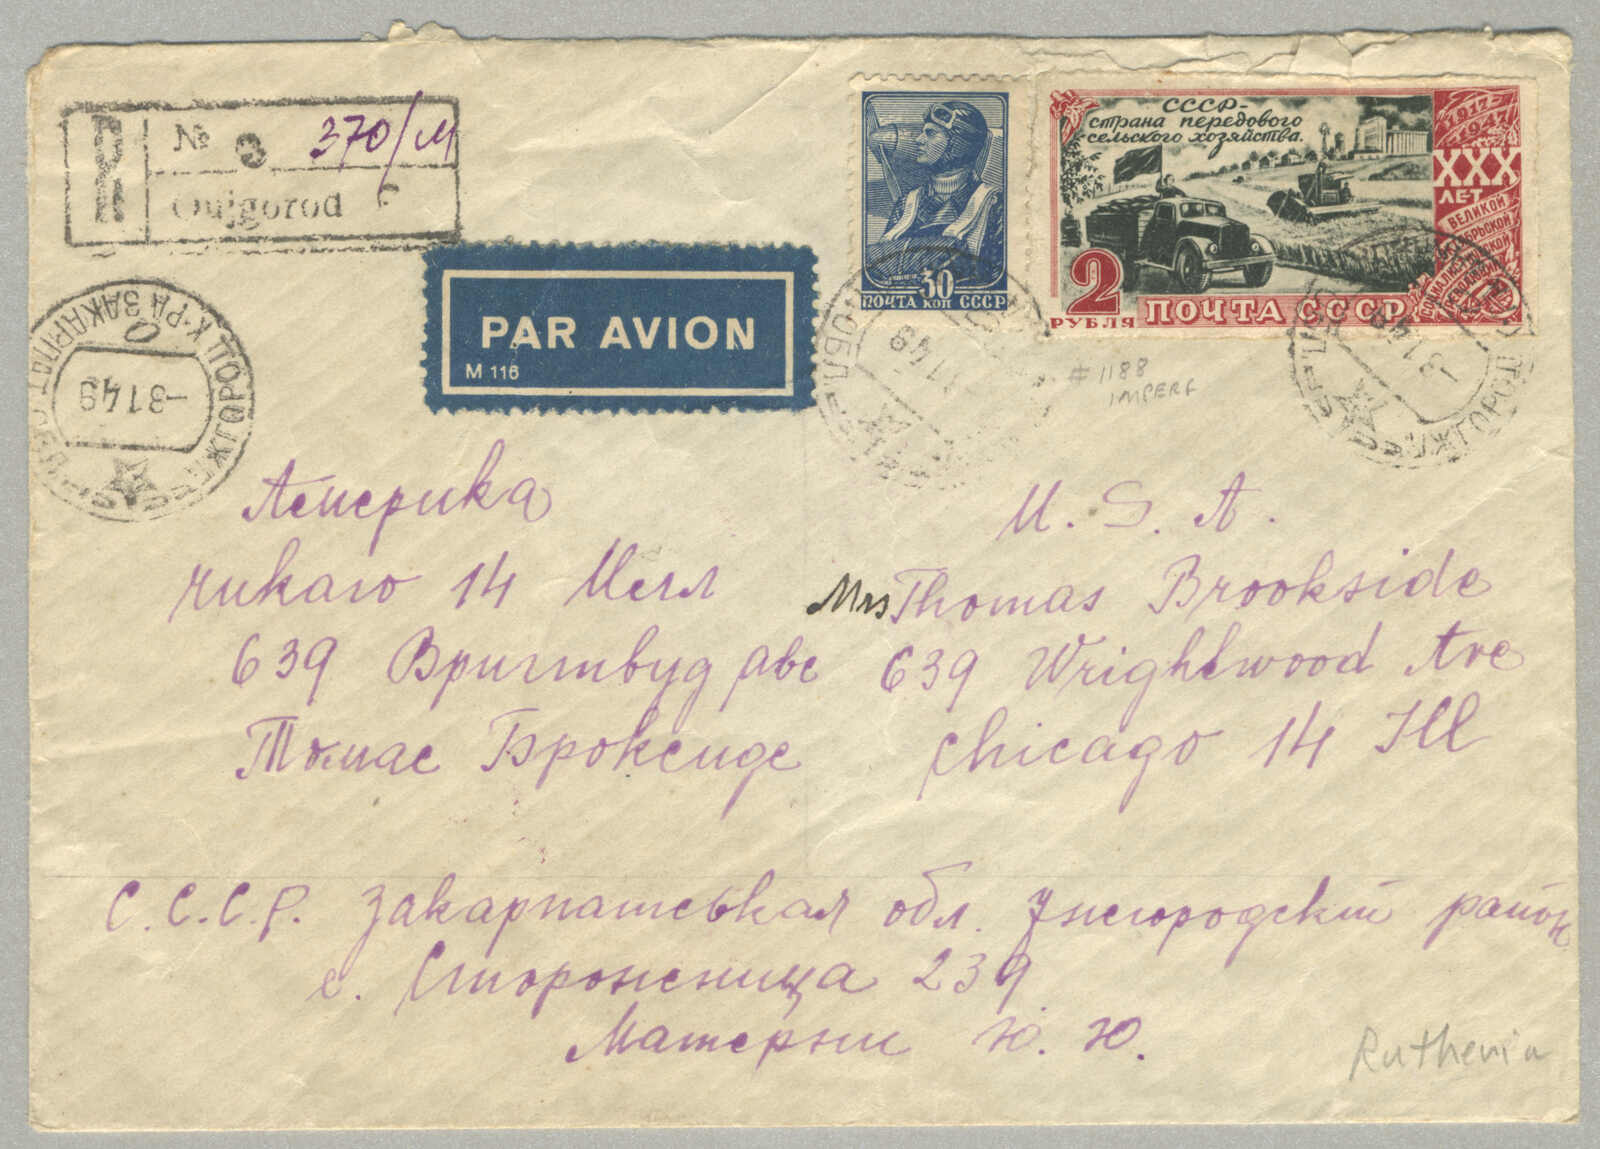 R
№ 370/М
Oujgorod
PAR AVION
M 116
30
ПОЧТА КОП СССР
СССР-
страна передового
сельского хозяйства.
1917
1947
XXX
ЛЕТ
ВЕЛИКОЙ
2
РУБЛЯ
ПОЧТА СССР
УЖГОРОД
-3149
# 1188
IMPERF
Америка
Чикаго 14 Илл
639 Вригтвуд аве
Томас Броксиде
U. S. A.
Mrs Thomas Brookside
639 Wrightwood Ave
Chicago 14 Ill
С.С.С.Р. Закарпатськая обл. Ужгородский район
с. Сторожница 239
Матерни Ю. Ю.
Ruthenia